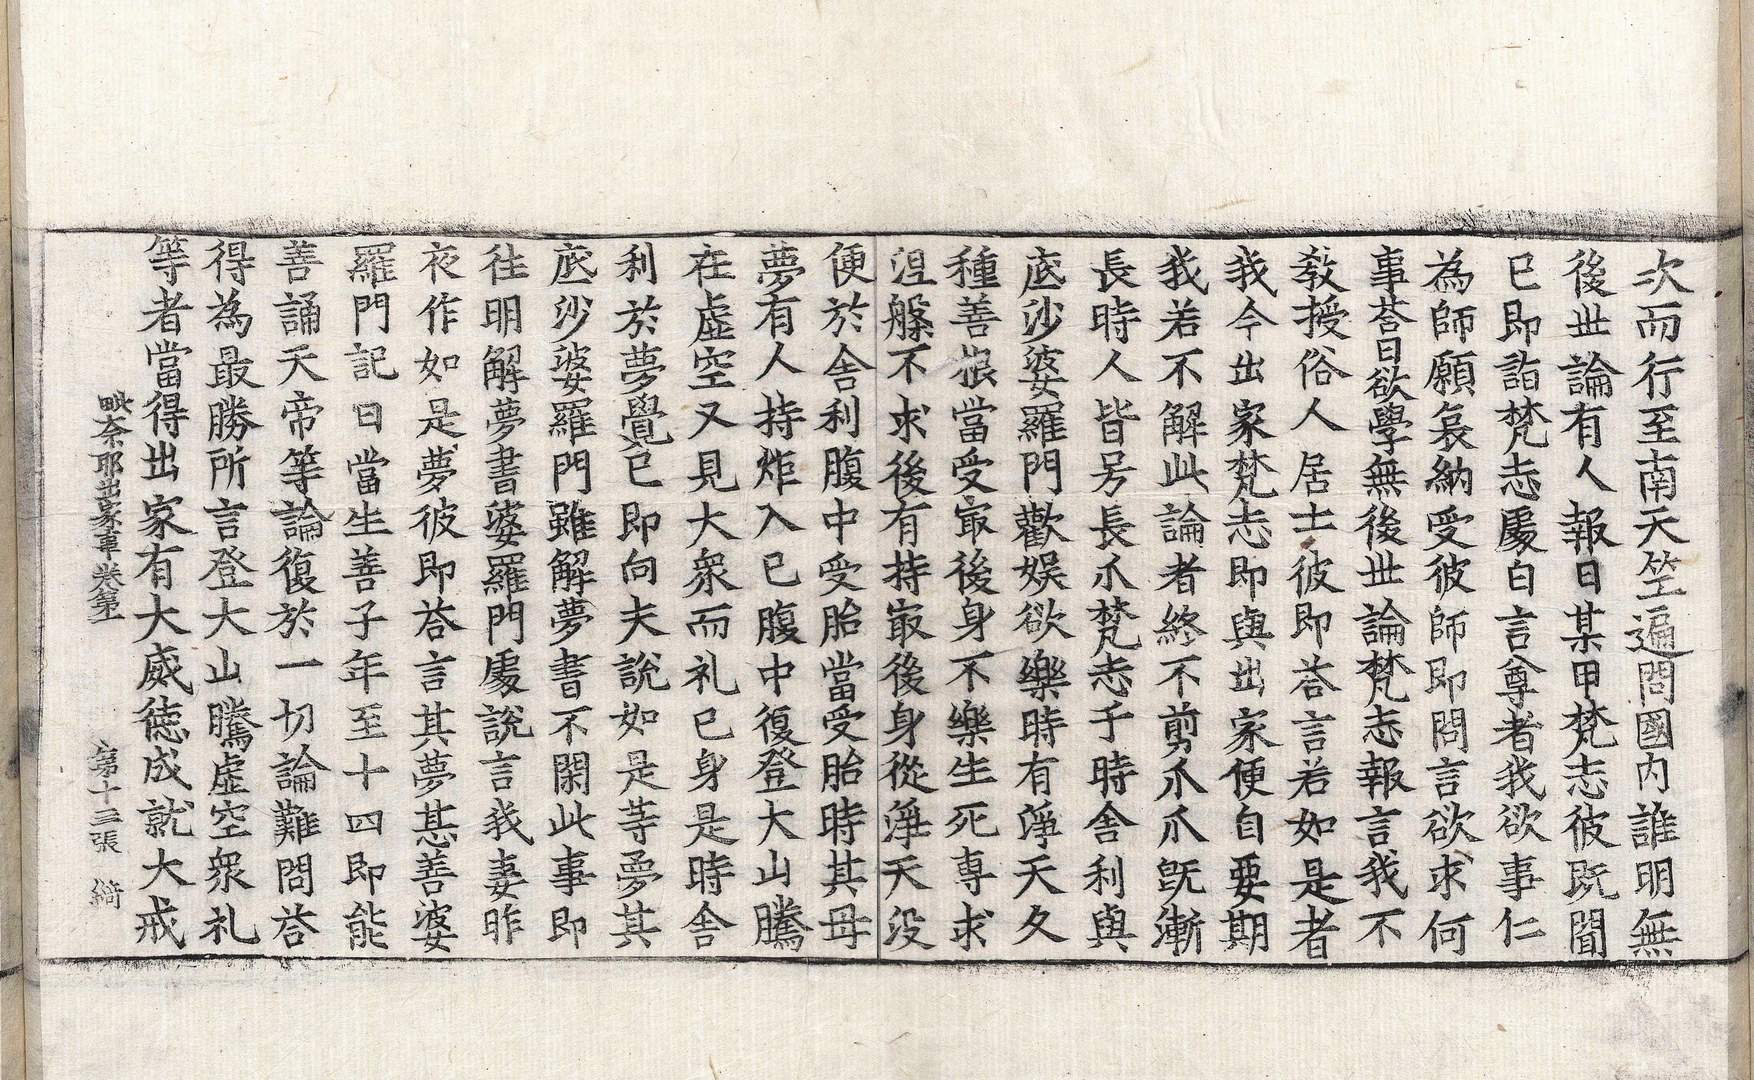 次而行至南天竺遍問國内誰明無
後世論有人報曰某甲梵志彼既聞
已即詣梵志處白言尊者我欲事仁
為師願哀納受彼師即問言欲求何
事荅曰欲學無後世論梵志報言我不
教授俗人居士彼即荅言若如是者
我今出家梵志即與出家便自要期
我若不解此論者終不剪爪爪既漸
長時人皆号長爪梵志于時舎利與
底沙婆羅門歡娯欲樂時有淨天久
種善根當受㝡後身不樂生死専求
涅槃不求後有持㝡後身從淨天没
便於舎利腹中受胎當受胎時其母
夢有人持炬入已腹中復登大山騰
在虚空又見大衆而礼已身是時舎
利於夢覺已即向夫說如是等夢其
底沙婆羅門雖解夢書不閑此事即
往明解夢書婆羅門處說言我妻昨
夜作如是夢彼即荅言其夢甚善婆
羅門記曰當生善子年至十四即能
善誦天帝等論復於一切論難問荅
得為最勝所言登大山騰虚空衆礼
等者當得出家有大威徳成就大戒
毗奈耶出家事卷第一　第十三張　綺